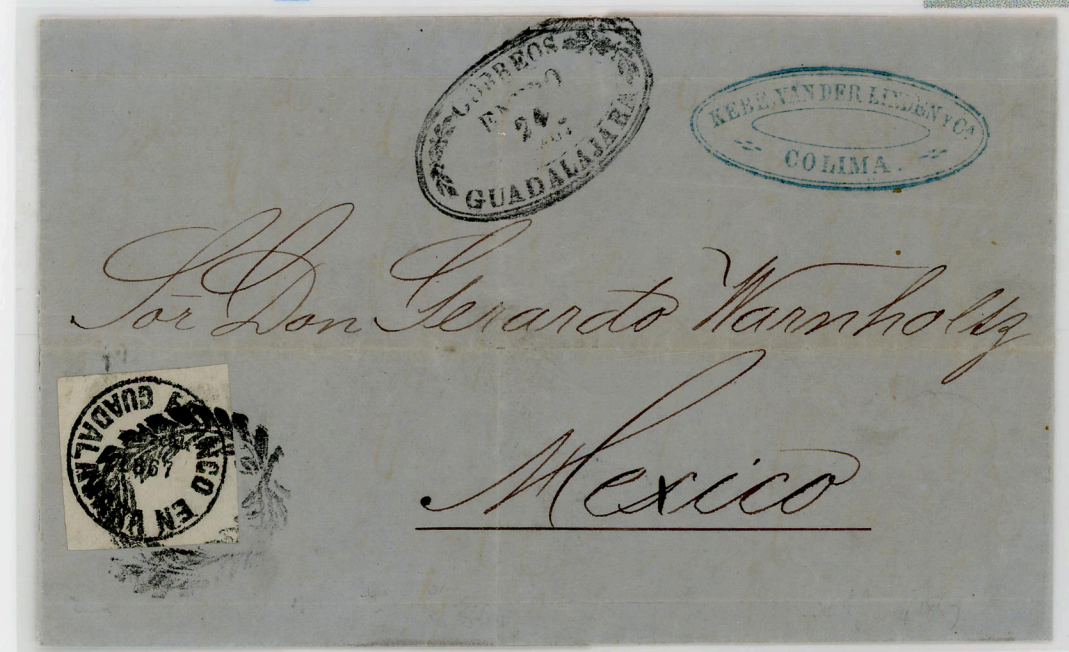 CORREOS
ENERO
24
GUADALAJARA
KEBE, VAN DER LINDEN Y Cª
COLIMA.
Sōr Don Gerardo Warnholtz
Mexico
EN GUADAL
867